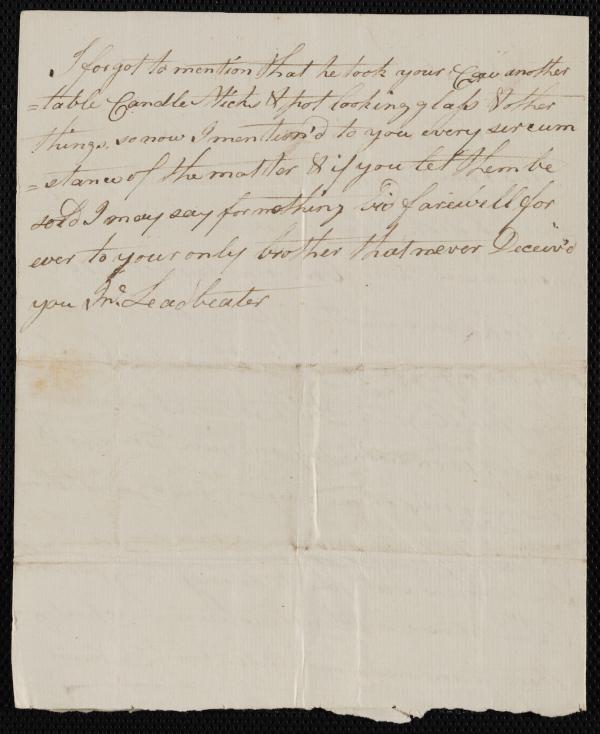 I forgot to mention that he took your Cow another
=table Candle Sticks & pot looking glass & other
things. so now I mention'd to you every sircum
=stance of the matter & if you let them be
sold I may say for nothing bid farewell for
ever to your only brother that never Deceiv'd
you Jno. Leadbeater